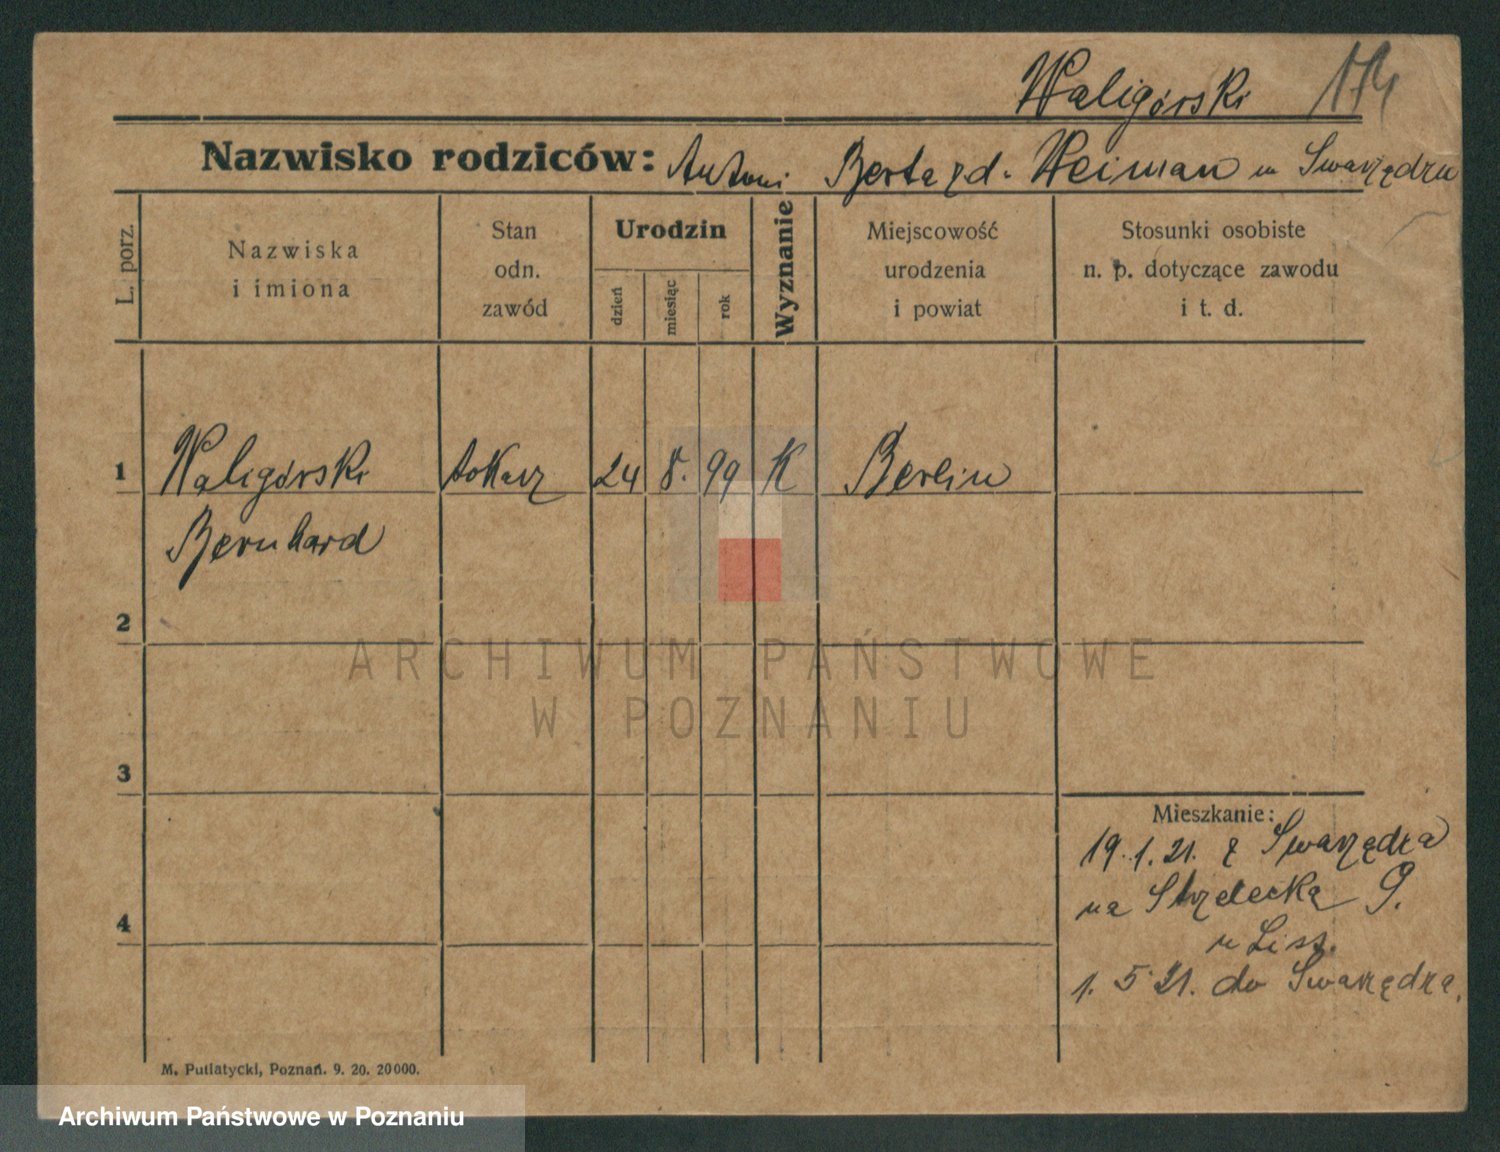 Waligórski 174
Nazwisko rodziców: Antoni Berta z d. Heiman w Swarzędzu
L. porz.
Nazwiska
i imiona
Stan
odn.
zawód
Urodzin
dzień
miesiąc
rok
Wyznanie
Miejscowość
urodzenia
i powiat
Stosunki osobiste
n. p. dotyczące zawodu
i t. d.
1 Waligórski tokarz 24 8. 99 K Berlin
Bernhard
2
3
4
ARCHIWUM PAŃSTWOWE
W POZNANIU
Mieszkanie:
19.1.21. z Swarzędza
na Strzelecką 9.
u Liss.
1. 5 21. do Swarzędza.
M. Putiatycki, Poznań. 9. 20. 20000.
Archiwum Państwowe w Poznaniu